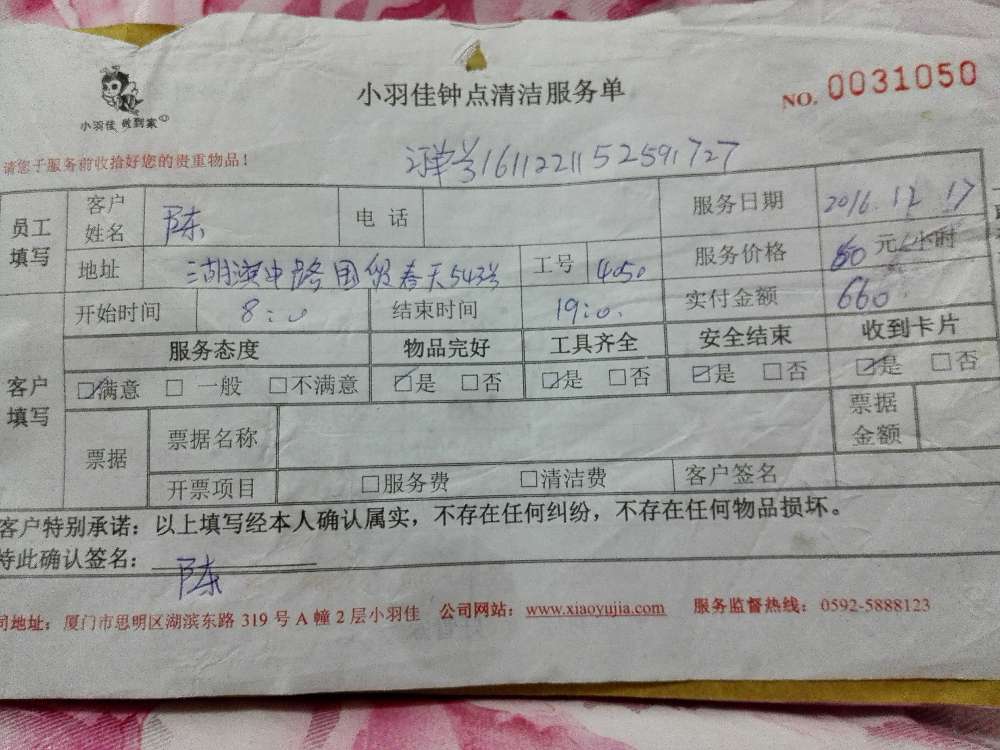 小羽佳 做到家
小羽佳钟点清洁服务单
NO. 0031050
请您于服务前收拾好您的贵重物品！
单号1611221152591727
员工填写 客户姓名 陈 电话 服务日期 2016.12.17
地址 湖滨中路国贸春天543号 工号 4050 服务价格 60元/小时
开始时间 8:0 结束时间 19:0. 实付金额 660
客户填写 服务态度 物品完好 工具齐全 安全结束 收到卡片
☑满意 □一般 □不满意 ☑是 □否 ☑是 □否 ☑是 □否 ☑是 □否
票据 票据名称 票据金额
开票项目 □服务费 □清洁费 客户签名
客户特别承诺：以上填写经本人确认属实，不存在任何纠纷，不存在任何物品损坏。
特此确认签名： 陈
司地址：厦门市思明区湖滨东路 319 号 A 幢 2 层小羽佳 公司网站：www.xiaoyujia.com 服务监督热线：0592-5888123